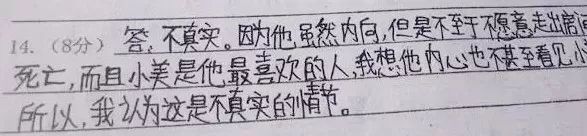 14.（8分） 答，不真实。因为他虽然内向，但是不至于不愿意走出房
死亡，而且小美是他最喜欢的人，我想他内心也不甚至看见小
所以，我认为这是不真实的情节。